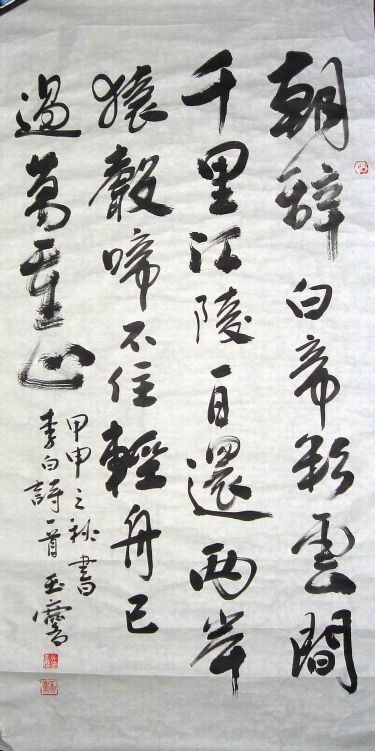 朝辭白帝彩雲間
千里江陵一日還兩岸
猿聲啼不住輕舟已
過萬重山
甲申之秋書
李白詩一首